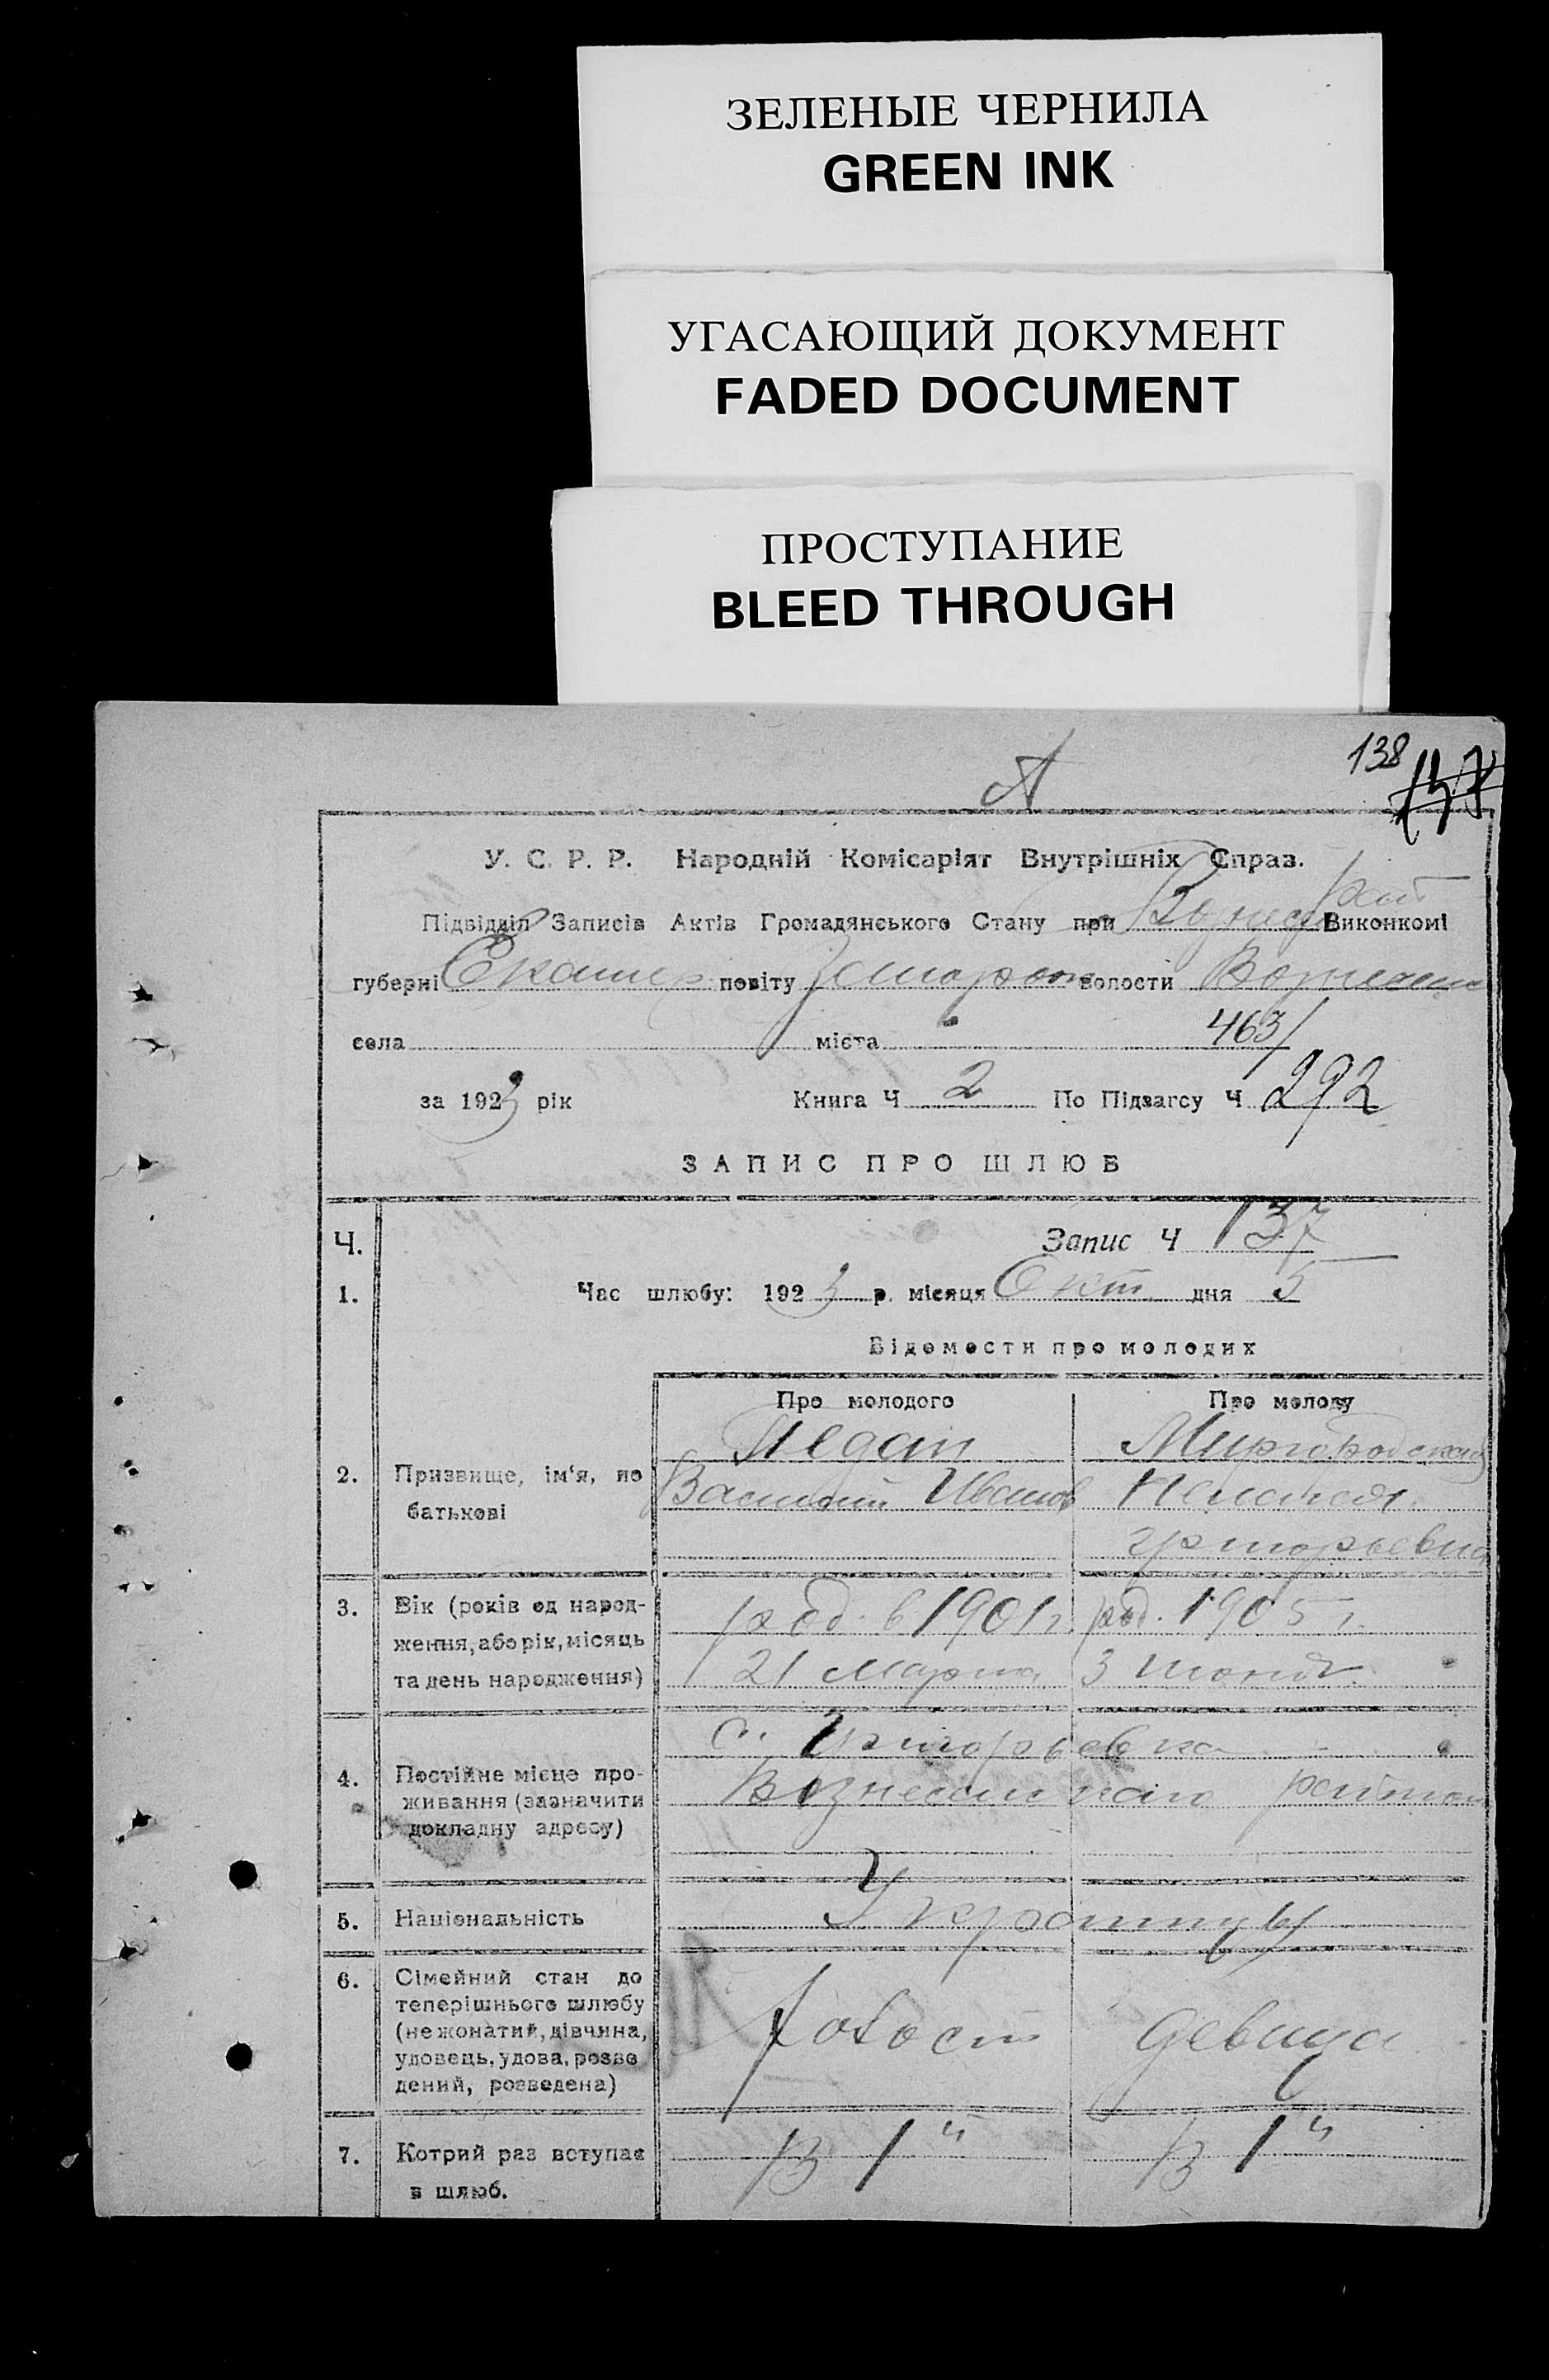 ЗЕЛЕНЫЕ ЧЕРНИЛА
GREEN INK
УГАСАЮЩИЙ ДОКУМЕНТ
FADED DOCUMENT
ПРОСТУПАНИЕ
BLEED THROUGH
138
А
У. С. Р. Р. Народній Комісаріят Внутрішніх Справ.
Підвідділ Записів Актів Громадянського Стану при Вознес рай Виконкомі
губерні Екатер повіту Запорож волости Вознесен
села міста 463/
за 1923 рік Книга Ч 2 По Підзагсу Ч 292
ЗАПИС ПРО ШЛЮБ
Ч. Запис Ч 137
1. Час шлюбу: 1923 р. місяця Окт. дня 5
Відомости про молодих
Про молодого Про молоду
Миргородская
2. Призвище, ім'я, по Василий Иванов
батькові
Григорьевна
3. Вік (років од народ- род. в 1901 г. род. 1905 г.
ження, або рік, місяць
та день народження) 21 марта 3 июня
с. Григорьевка
4. Постійне місце про- Вознесенского района
живання (зазначити
докладну адресу)
5. Національність Украинцы
6. Сімейний стан до
теперішнього шлюбу
(не жонатий, дівчина, холост девица
удовець, удова, розве
дений, розведена)
7. Котрий раз вступає В 1й В 1й
в шлюб.